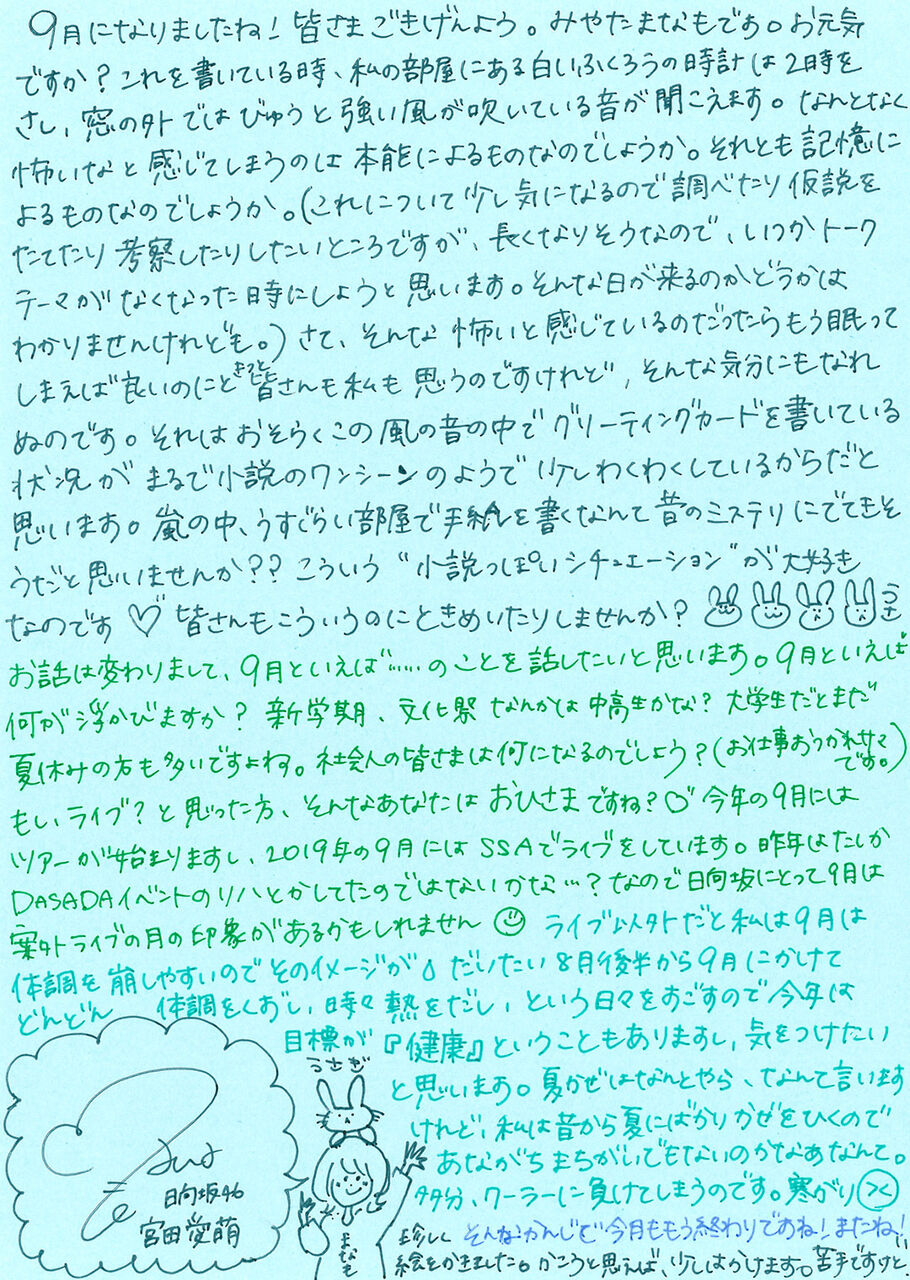 9月になりましたね！皆さまごきげんよう。みやたまなもです。お元気
ですか？これを書いている時、私の部屋にある白いふくろうの時計は2時を
さし、窓の外ではびゅうと強い風が吹いている音が聞こえます。なんとなく
怖いなと感じてしまうのは本能によるものなのでしょうか。それとも記憶に
よるものなのでしょうか。(これについて少し気になるので調べたり仮説を
たてたり考察したりしたいところですが、長くなりそうなので、いつかトーク
テーマがなくなった時にしようと思います。そんな日が来るのかどうかは
わかりませんけれども。)さて、そんな怖いと感じているのだったらもう眠って
しまえば良いのにときっと皆さんも私も思うのですけれど、そんな気分にもなれ
ぬのです。それはおそらくこの風の音の中でグリーティングカードを書いている
状況がまるで小説のワンシーンのようで少しわくわくしているからだと
思います。嵐の中、うすぐらい部屋で手紙を書くなんて昔のミステリにでてきそ
うだと思いませんか？？こういう"小説っぽいシチュエーション"が大好き
なのです♡ 皆さんもこういうのにときめいたりしませんか？ うさ
お話は変わりまして、9月といえば……のことを話したいと思います。9月といえば
何が浮かびますか？新学期、文化祭なんかは中高生かな？大学生だとまだ
夏休みの方も多いですよね。社会人の皆さまは何になるのでしょう？(お仕事おつかれサマです。)
もし、ライブ？と思った方、そんなあなたはおひさまですね？♡ 今年の9月には
ツアーが始まりますし、2019年の9月にはSSAでライブをしています。昨年はたしか
DASADAイベントのリハとかしてたのではないかな…？なので日向坂にとって9月は
案外ライブの月の印象があるかもしれません☺ ライブ以外だと私は9月は
体調を崩しやすいのでそのイメージが だいたい8月後半から9月にかけて
どんどん 体調をくずし、時々熱をだし、という日々をすごすので今年は
目標が『健康』ということもありますし、気をつけたい
と思います。夏かぜはなんとやら、なんて言います
けれど、私は昔から夏にばかりかぜをひくので
あながちまちがいでもないのかなあなんて。
多分、クーラーに負けてしまうのです。寒がり(><)
そんなかんじで今月ももう終わりですね！またね！
珍しく
絵をかきました。かこうと思えば、少しはかけます。苦手ですけど。
うさぎ
まなも
まなも
日向坂46
宮田愛萌